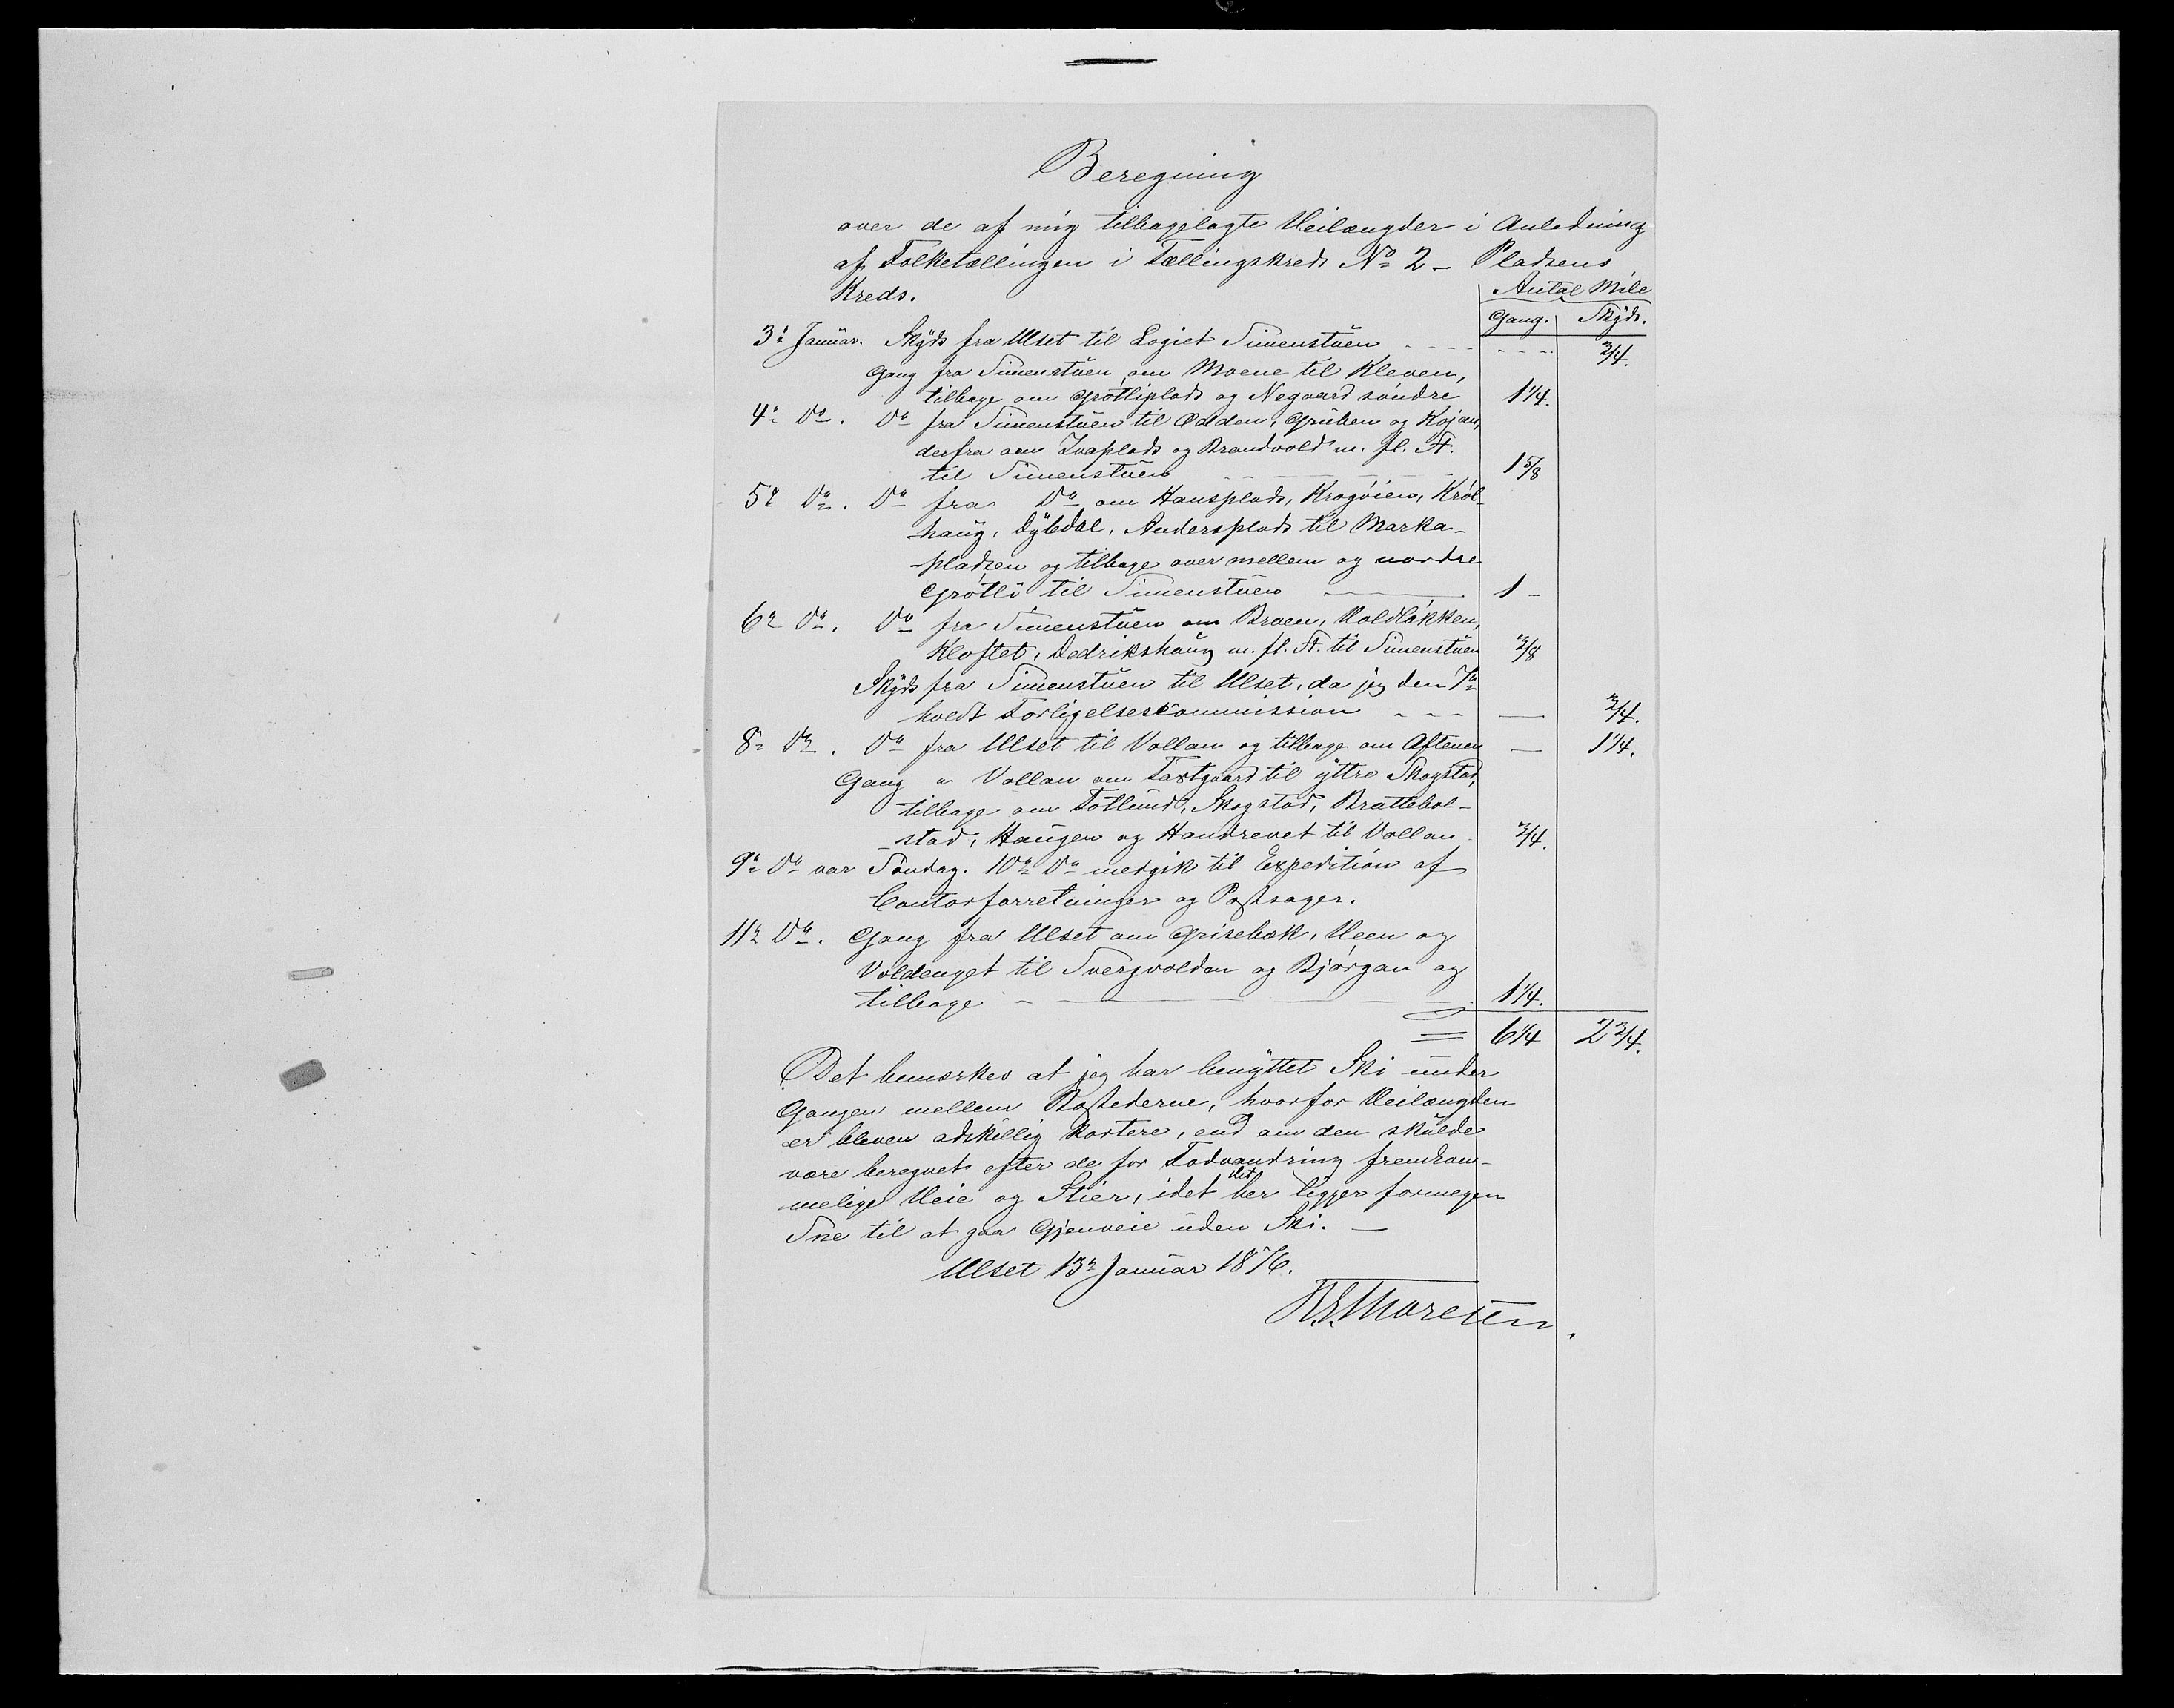 Beregning
over de af mig tilbagelagte Veilængder i Anledning
af Folketællingen i Tællingskreds No 2 - Pladsens
Kreds.
Antal Mile
Gang. Skyds.
3die Januar. Skyds fra Ulset til Logiet Simenstuen - - - - - - - - 3/4.
Gang fra Simenstuen om Moene til Kleven,
tilbage om Grøtliplads og Negaard søndre 1 1/4.
4de Do. Do fra Simenstuen til Odden, Gruben og Kojan,
derfra om Ivaplads og Brandvold m. fl. St.
til Simenstuen 1 5/8
5te Do. Do fra Do om Hansplads, Krogøien, Krøl-
haug, Dybdal, Andersplads til Marka-
pladsen og tilbage over mellem og nordre
Grøtli til Simenstuen 1 -
6te Do. Do fra Simenstuen om Broen, Voldløkken,
Kloftet, Dedrikshaug m. fl. St. til Simenstuen 3/8
Skyds fra Simenstuen til Ulset, da jeg den 7de
holdt Forligelsescommission - - - — 3/4.
8de Do. Do fra Ulset til Vollan og tilbage om Aftenen — 1 1/4.
Gang " Vollan om Taxtgaard til yttre Skogstad,
tilbage om Totlund, Skogstad, Brattebol-
stad, Haugen og Handrevet til Vollan 3/4.
9de Do var Søndag. 10de Do medgik til Expedition af
Contorforretninger og Postsager.
11te Do. Gang fra Ulset om Grisebæk, Veen og
Voldenget til Svergvolden og Bjørgan og
tilbage 1 1/4.
= 6 1/4 2 3/4.
Det bemærkes at jeg har benyttet Ski under
Gangen mellem Bostederne, hvorfor Veilængden
er bleven adskillig kortere, end om den skulde
være beregnet efter de for Fodvandring fremkom-
melige Veie og Stier, idet det her ligger formegen
Sne til at gaa Gjenveie uden Ski. —
Ulset 13de Januar 1876.